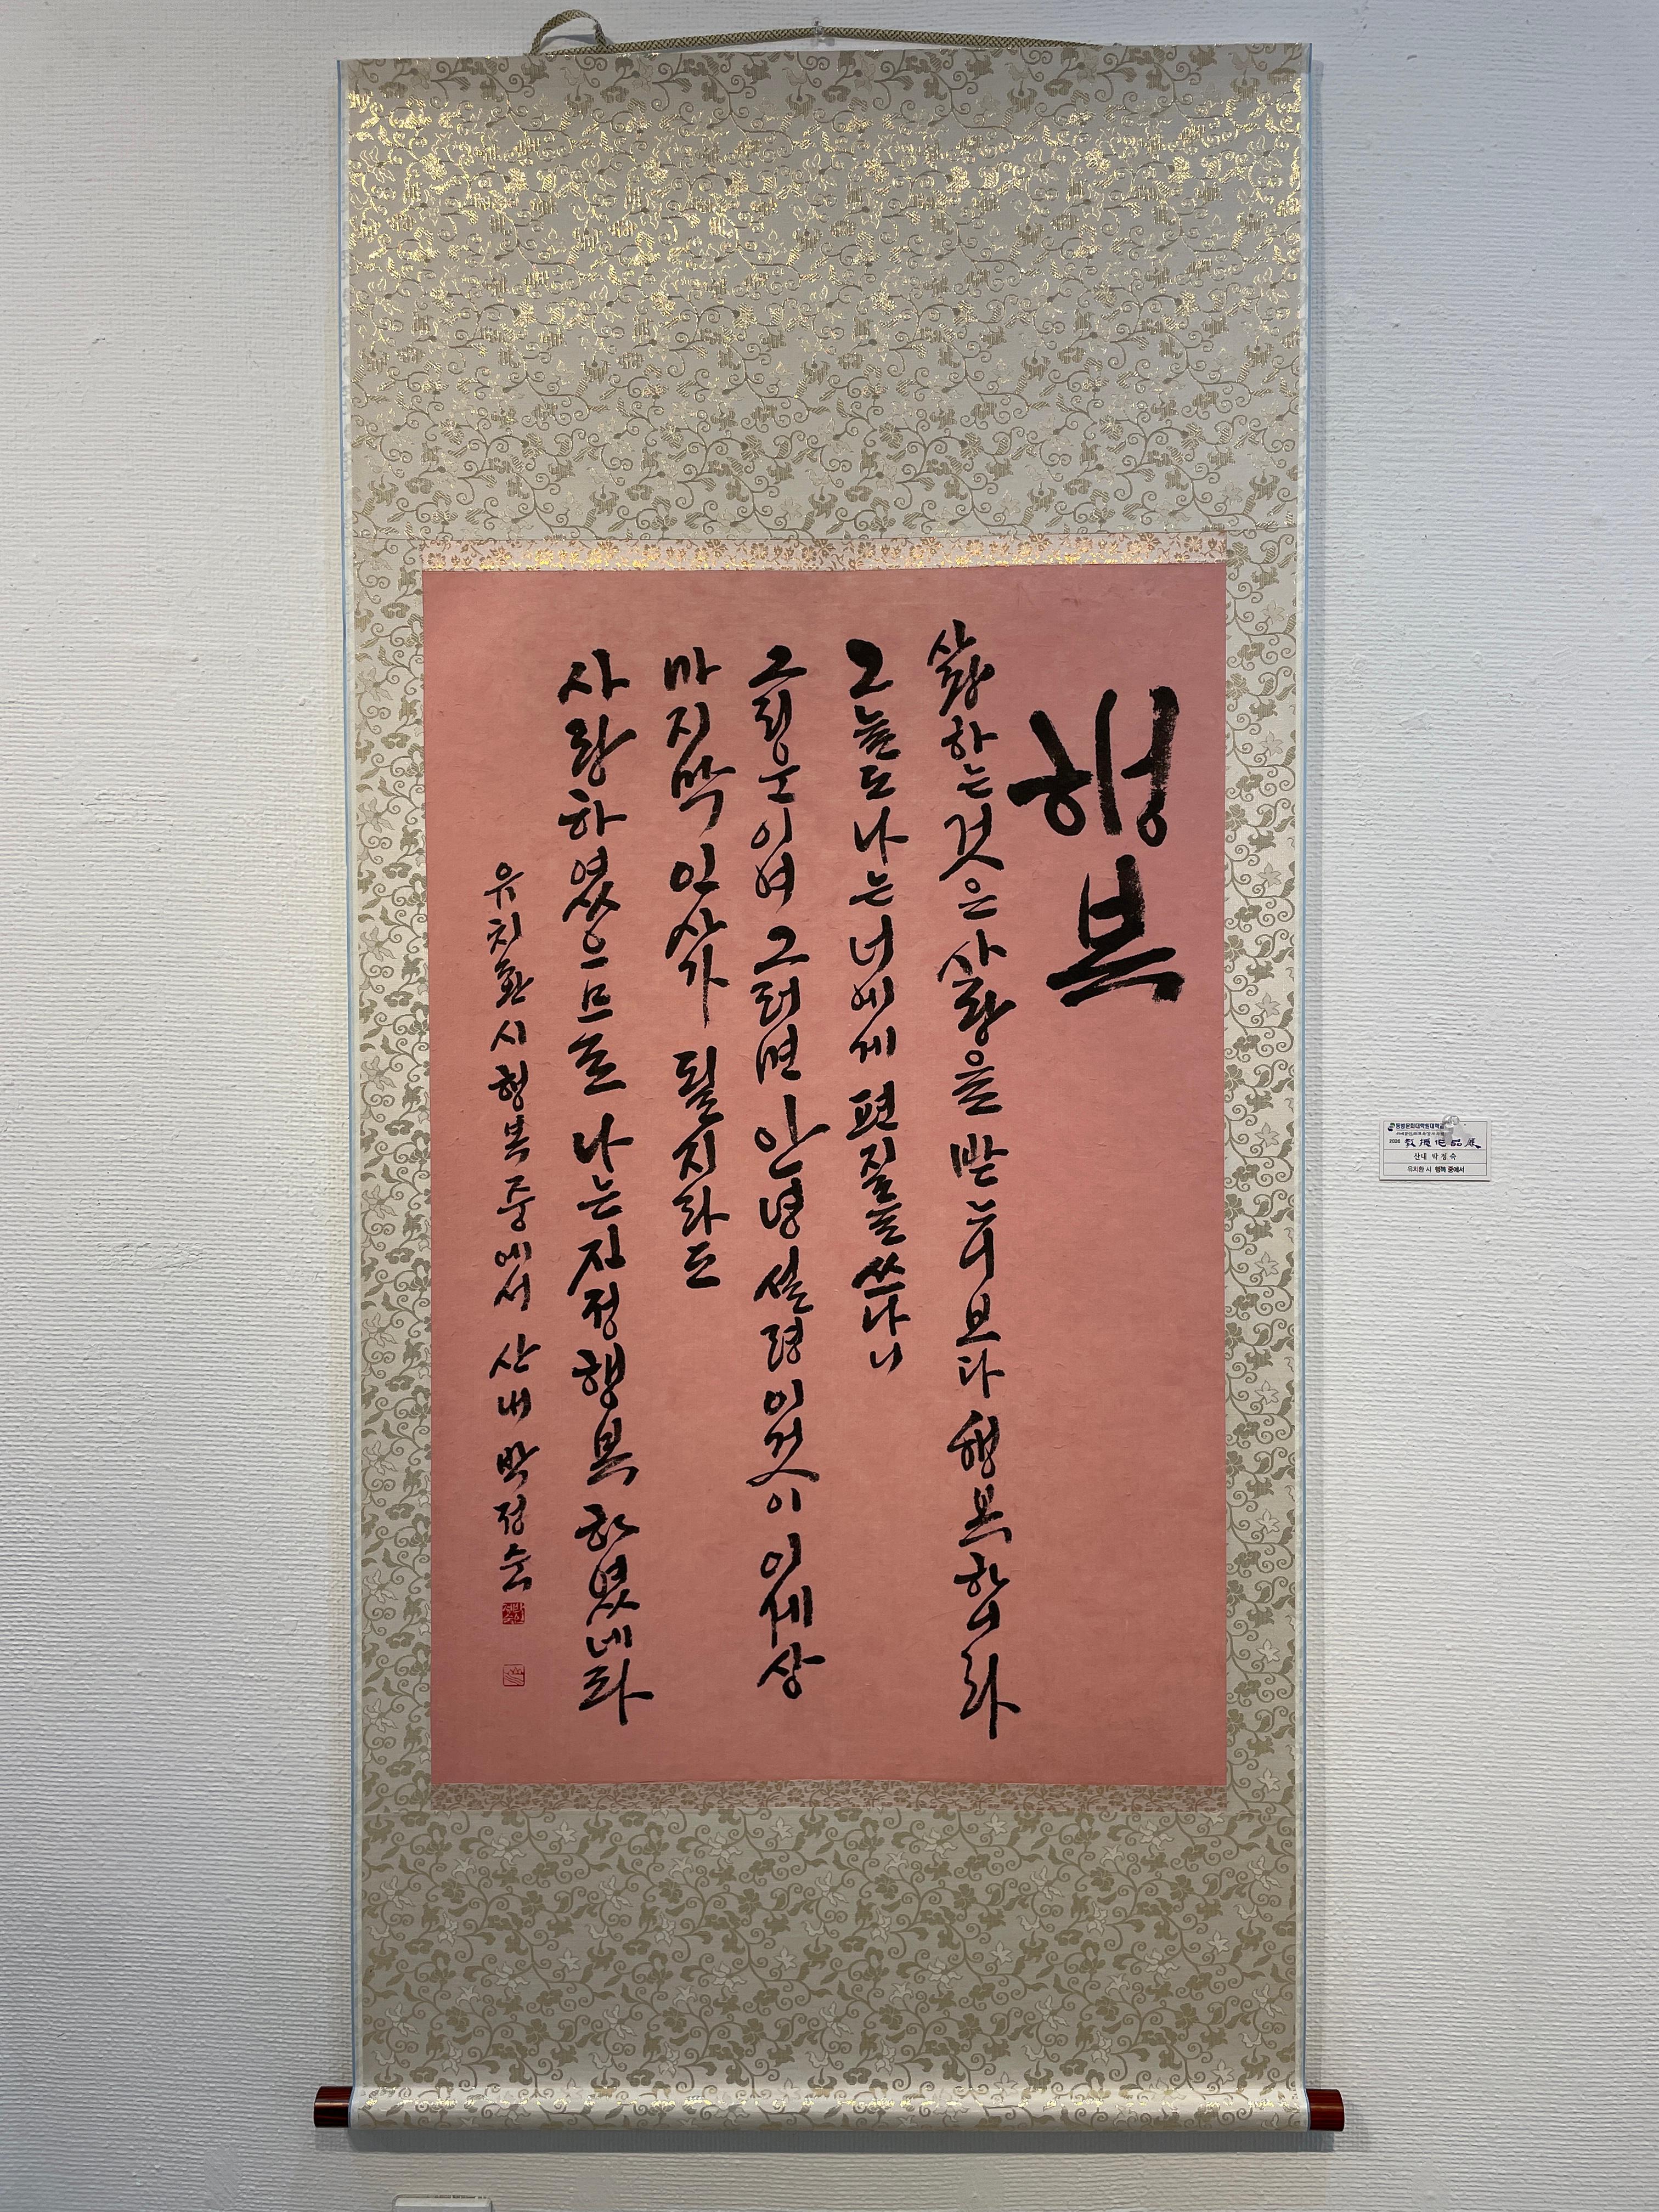 행복
사랑하는것은 사랑을 받느니보다 행복하니라
오늘도 나는 너에게 편질을 쓰나니
그리운이여 그러면 안녕 설령 이것이 이세상
마지막 인사가 될지라도
사랑하였으므로 나는 진정 행복하였네라
유치환 시 행복 중에서 산내 박정숙
동방문화대학원대학교
2026
산내 박정숙
유치환 시 행복 중에서